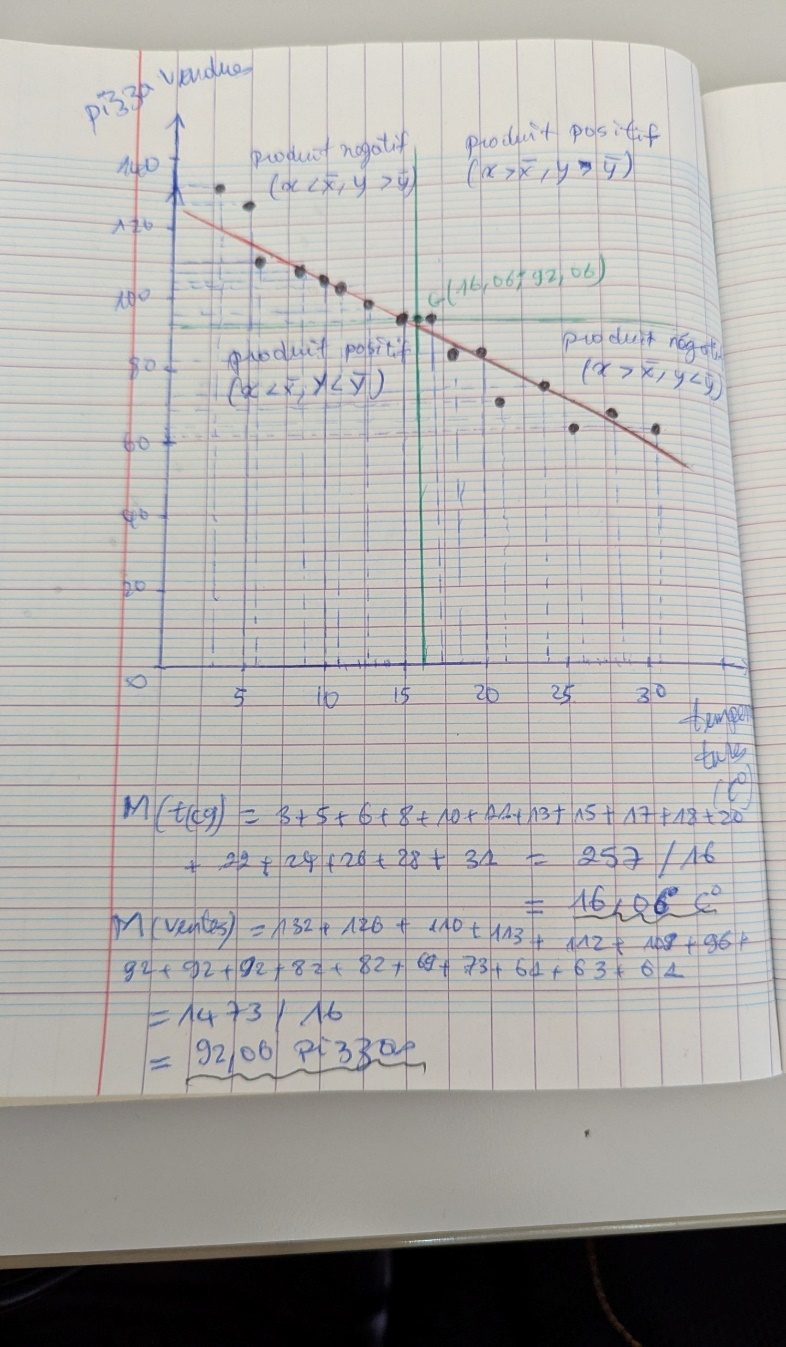 pizza vendues
140
120
100
80
60
40
20
0
5 10 15 20 25 30
produit négatif
(x < x̅, y > y̅)
produit positif
(x > x̅, y > y̅)
G(16,06; 92,06)
produit positif
(x < x̅, y < y̅)
produit négatif
(x > x̅, y < y̅)
tempera
tures
(C°)
M(t(c°)) = 3+5+6+8+10+11+13+15+17+18+20
+ 22+24+26+28+31 = 257 / 16
= 16,06 C°
M(ventes) = 132 + 126 + 110 + 113 + 112 + 108 + 96 +
92 + 92 + 92 + 82 + 82 + 69 + 73 + 61 + 63 + 61
= 1473 / 16
= 92,06 pizzas